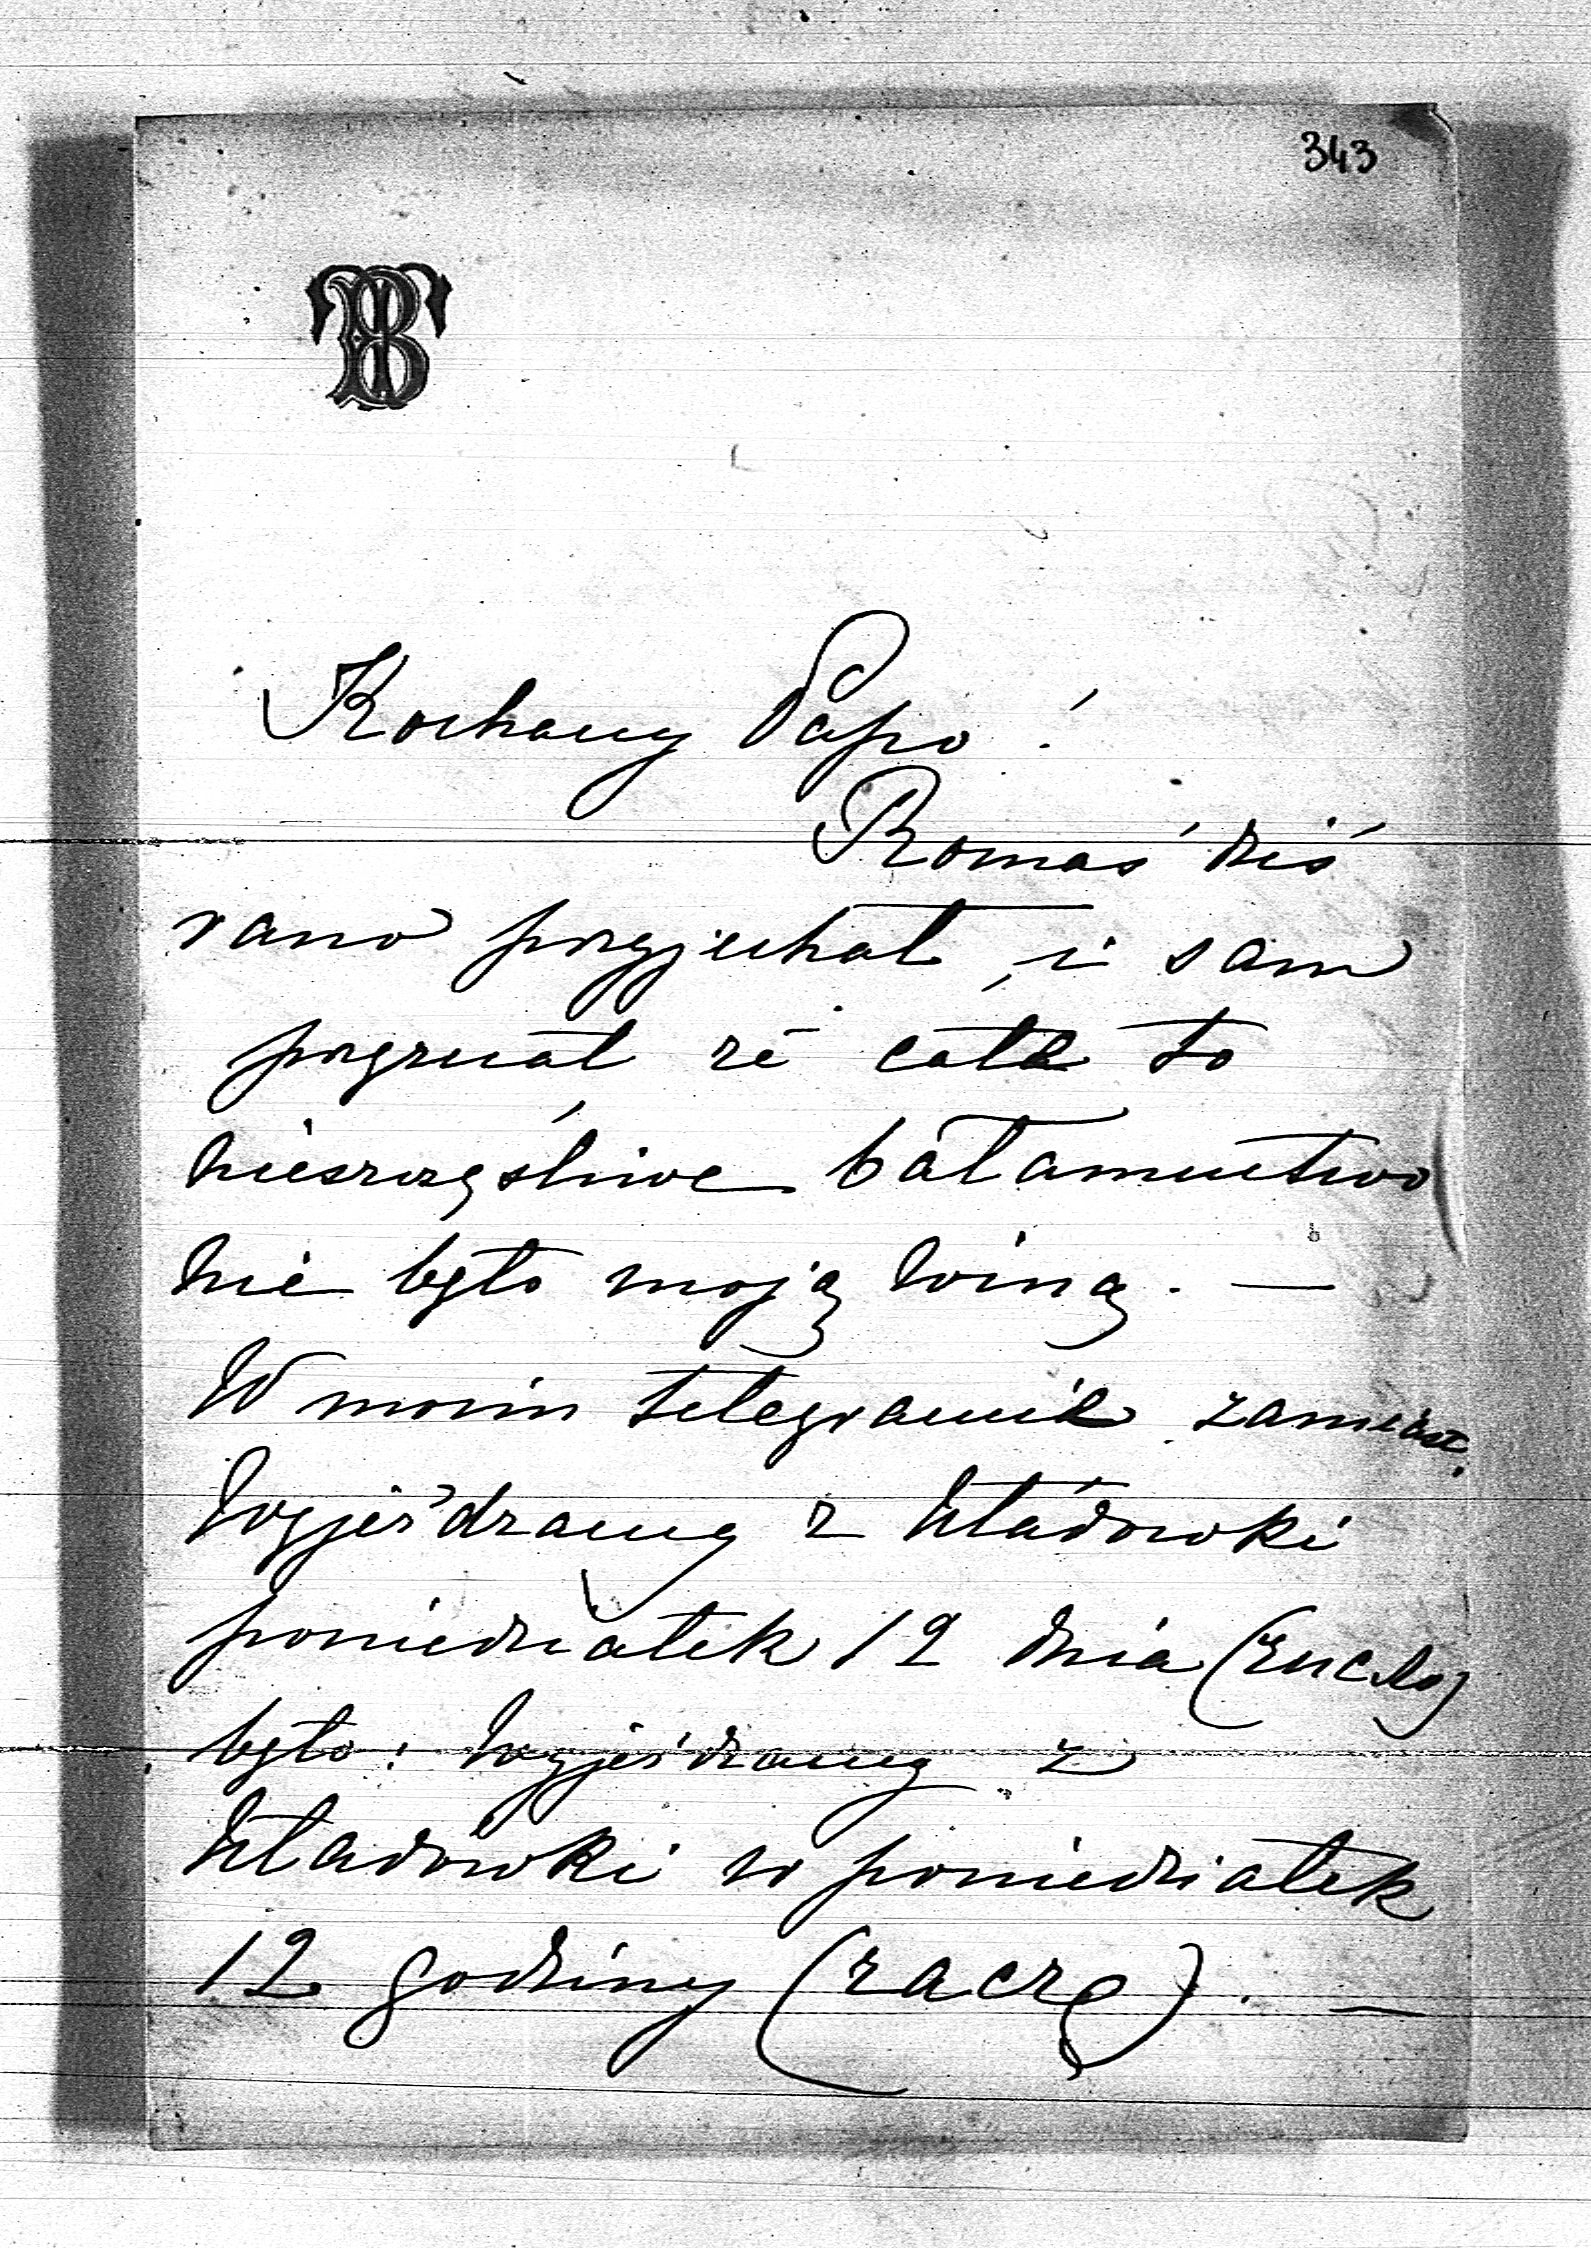 343
TB
Kochany Papo!
Romaś dziś
rano przyjechał, i sam
przyznał że całe to
nieszczęśliwe bałamuctwo
nie było moją winą. —
W moim telegramie zamiast
Wyjeżdzamy z Władówki
poniedziałek 12 dnia
było: Wyjeżdzamy z
Władówki w poniedziałek
12 godziny (raczę). —